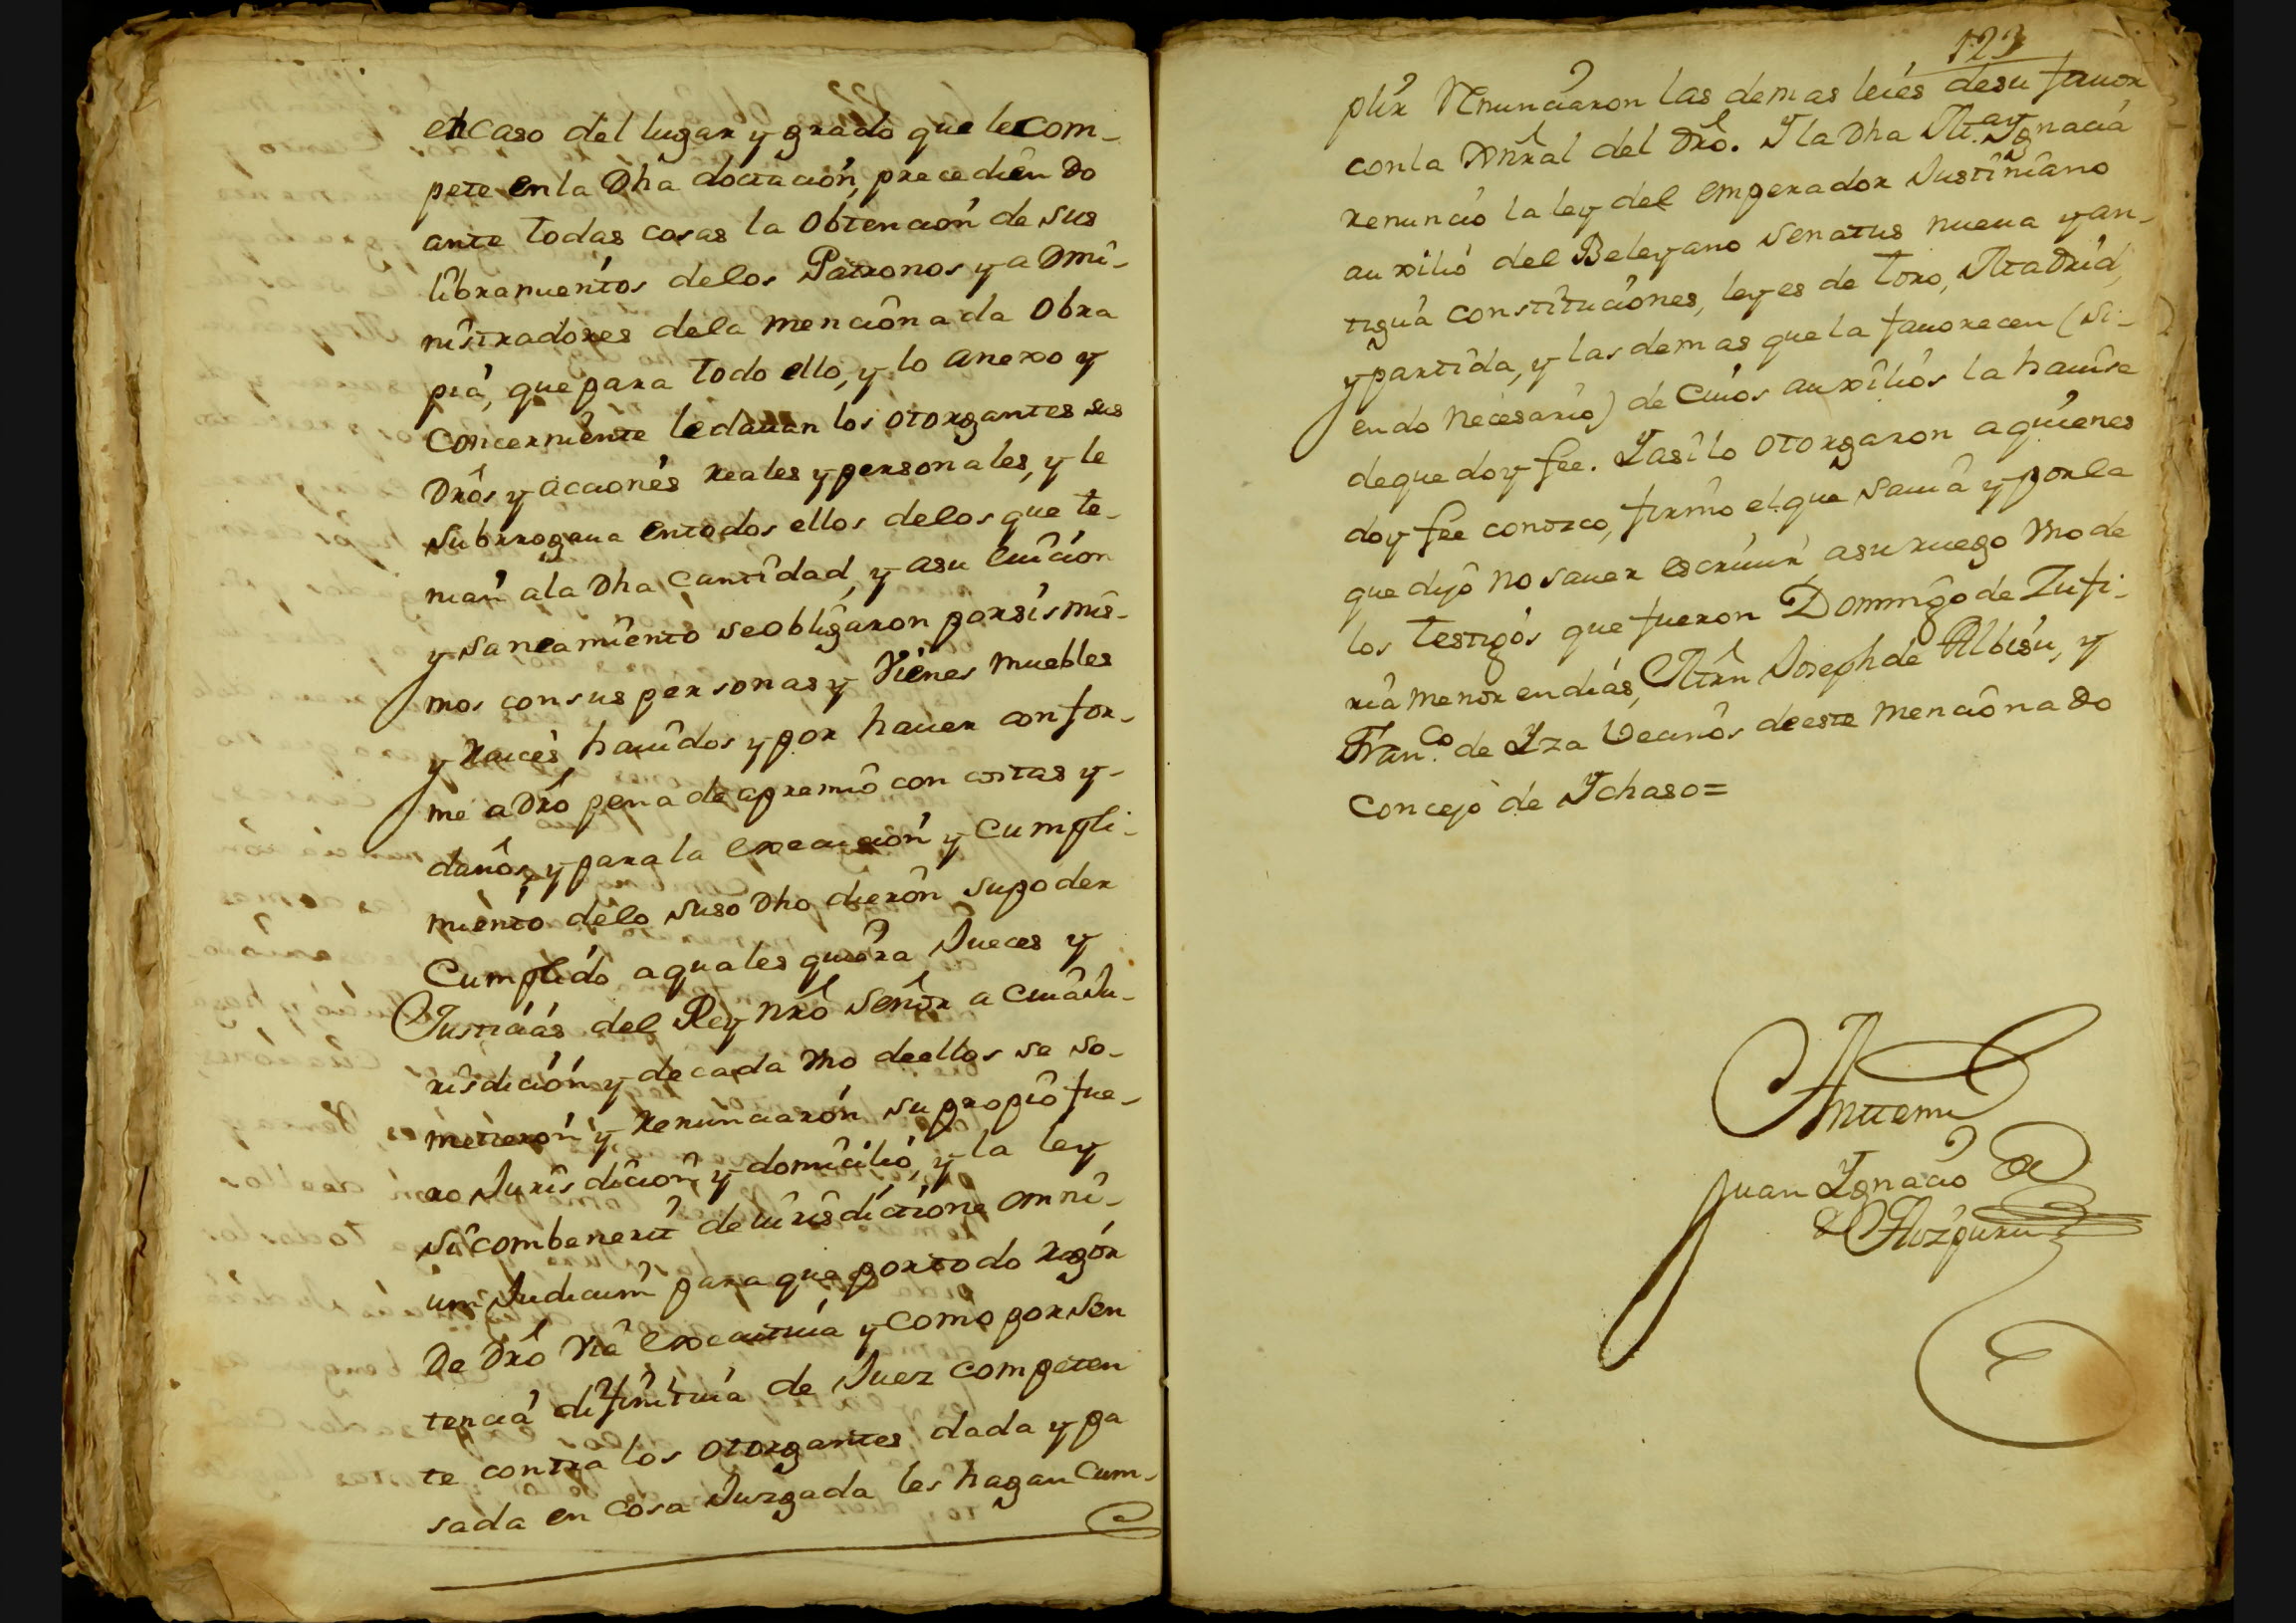 el caso del lugar y grado que le com-
pete en la Dha dotacion, precedien do
ante todas cosas la obtencion de sus
libramientos de los Patronos y admi-
nistradores de la mencionada Obra
pia, que para todo ello, y lo anexo y
concerniente le dauan los otorgantes sus
Dros y acciones reales y personales, y le
subrrogaua en todos ellos de los que te-
nian a la Dha cantidad, y asu euicion
y saneamiento se obligaron por sis mis-
mos con sus personas y Vienes muebles
y raices, hauidos y por hauer confor-
me a Dro pena de apremio con costas y-
daños, y para la execucion y cumpli-
miento de lo suso Dho dieron su poder
cumplido a quales quiera Jueces y
Justicias del Rey Nro Señor a cuia Ju-
risdicion y de cada Vno de ellos se so-
metieron y renunciaron su propio fue-
ro Jurisdicion, y domicilio, y la ley
si combenerit de iurisdictione omni-
um Judicum para que por todo rigor
De Dro Via executiua y como por sen
tencia difinitiua de Juez competen
te contra los otorgantes, dada y pa
sada en cosa Juzgada les hagan cum-
123
plir Renunciaron las demas leies de su fauor
con la Gnral del Dro. Y la Dha Ma. Ygnacia
renuncio la ley del emperador Justiniano
auxilio del Beleyano senatus nueua y an-
tigua constituciones, leyes de toro, Madrid,
y partida, y las demas que la fauorecen (si-
endo necesario) de cuios auxilios la hauise
de que doy fee. Y asi lo otorgaron a quienes
doy fee conozco, firmo el que sauia y por la
que dijo no sauer escriuir, a su ruego Vno de
los testigos que fueron Domingo de Zufi-
ria menor en dias, Mrn Joseph de Albisu, y
Franco. de Yza Vecinos de este mencionado
concejo de Ychaso=
Antemi
Juan Ygnacio
de Aozpuru